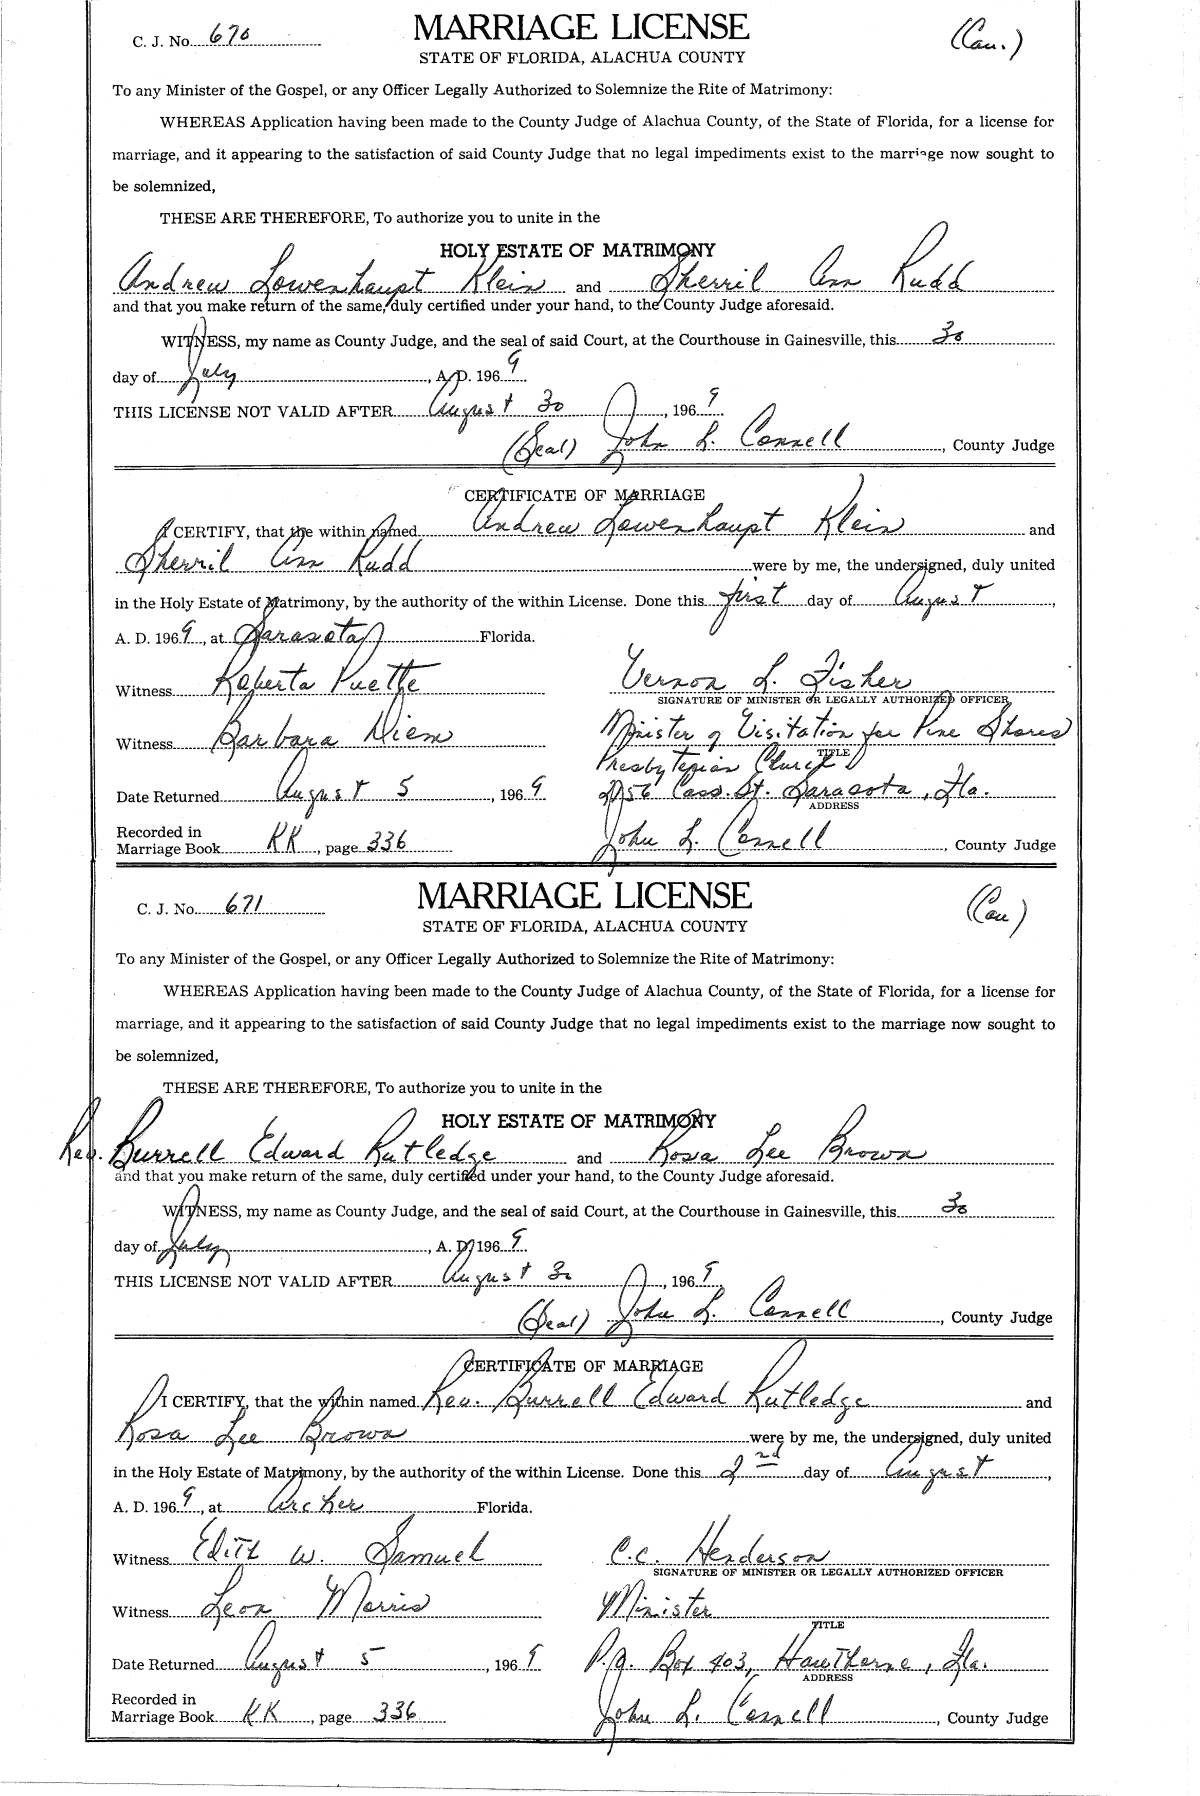 C. J. No. 670 MARRIAGE LICENSE (Cau.)
STATE OF FLORIDA, ALACHUA COUNTY
To any Minister of the Gospel, or any Officer Legally Authorized to Solemnize the Rite of Matrimony:
WHEREAS Application having been made to the County Judge of Alachua County, of the State of Florida, for a license for
marriage, and it appearing to the satisfaction of said County Judge that no legal impediments exist to the marriage now sought to
be solemnized,
THESE ARE THEREFORE, To authorize you to unite in the
HOLY ESTATE OF MATRIMONY
Andrew Lowenhaupt Klein and Sherril Ann Rudd
and that you make return of the same, duly certified under your hand, to the County Judge aforesaid.
WITNESS, my name as County Judge, and the seal of said Court, at the Courthouse in Gainesville, this 30
day of July, A. D. 1969
THIS LICENSE NOT VALID AFTER August 30, 1969
(Seal) John L. Connell, County Judge
CERTIFICATE OF MARRIAGE
I CERTIFY, that the within named Andrew Lowenhaupt Klein and
Sherril Ann Rudd were by me, the undersigned, duly united
in the Holy Estate of Matrimony, by the authority of the within License. Done this first day of August,
A. D. 1969, at Sarasota Florida.
Witness Roberta Puette Vernon L. Fisher
SIGNATURE OF MINISTER OR LEGALLY AUTHORIZED OFFICER
Witness Barbara Diem Minister of Visitation for Pine Shores
Presbyterian Church
TITLE
Date Returned August 5, 1969 Cass. St. Sarasota, Fla.
ADDRESS
Recorded in
Marriage Book KK, page 336 John L. Connell, County Judge
C. J. No. 671 MARRIAGE LICENSE (Cau)
STATE OF FLORIDA, ALACHUA COUNTY
To any Minister of the Gospel, or any Officer Legally Authorized to Solemnize the Rite of Matrimony:
WHEREAS Application having been made to the County Judge of Alachua County, of the State of Florida, for a license for
marriage, and it appearing to the satisfaction of said County Judge that no legal impediments exist to the marriage now sought to
be solemnized,
THESE ARE THEREFORE, To authorize you to unite in the
HOLY ESTATE OF MATRIMONY
Rev. Burrell Edward Rutledge and Rosa Lee Brown
and that you make return of the same, duly certified under your hand, to the County Judge aforesaid.
WITNESS, my name as County Judge, and the seal of said Court, at the Courthouse in Gainesville, this 30
day of July, A. D. 1969
THIS LICENSE NOT VALID AFTER August 30, 1969
(Seal) John L. Connell, County Judge
CERTIFICATE OF MARRIAGE
I CERTIFY, that the within named Rev. Burrell Edward Rutledge and
Rosa Lee Brown were by me, the undersigned, duly united
in the Holy Estate of Matrimony, by the authority of the within License. Done this 2nd day of August,
A. D. 1969, at Archer Florida.
Witness Edith W. Samuel C.C. Henderson
SIGNATURE OF MINISTER OR LEGALLY AUTHORIZED OFFICER
Witness Leon Morris Minister
TITLE
Date Returned August 5, 1969 P.O. Box 403, Hawthorne, Fla.
ADDRESS
Recorded in
Marriage Book KK, page 336 John L. Connell, County Judge